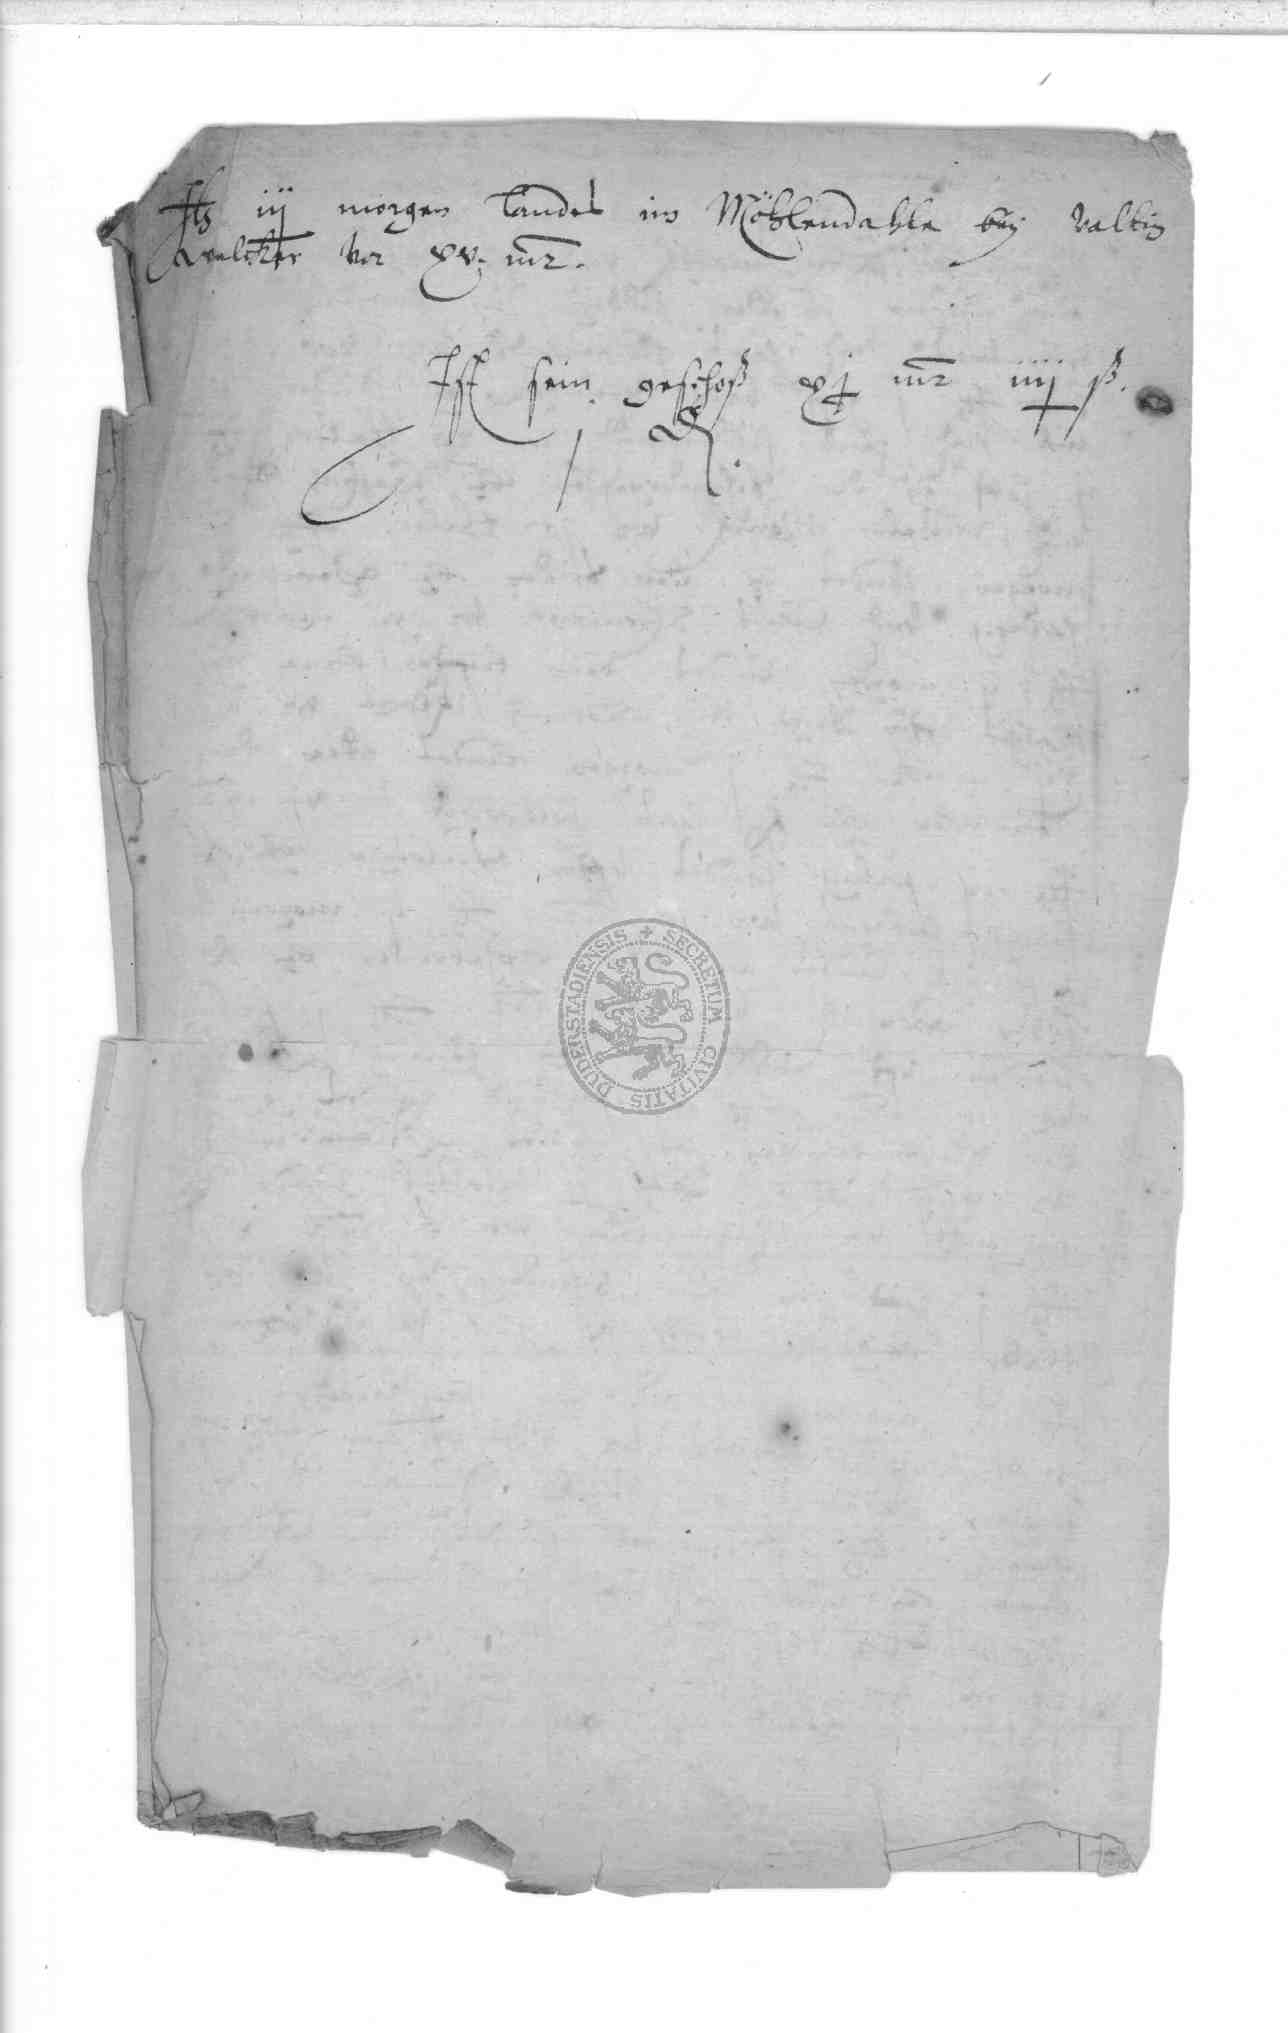 It iij morgen Landes im Möhlendahle bey Valtin
Welcker vor xv. mr.
Ist sein geschoß xj mr iiij ß.
j ₰.
SECRETUM CIVITATIS DUDERSTADIENSIS